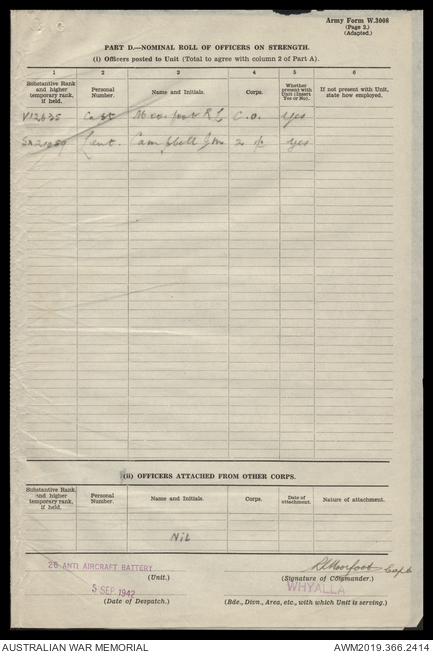 Army Form W.3008
(Page 2.)
(Adapted.)
PART D.—NOMINAL ROLL OF OFFICERS ON STRENGTH.
(i) Officers posted to Unit (Total to agree with column 2 of Part A).
1 2 3 4 5 6
Substantive Rank and higher temporary rank, if held. Personal Number. Name and Initials. Corps. Whether present with Unit (Insert Yes or No). If not present with Unit, state how employed.
V12635 Capt Moorfoot R L C.O. yes
Lieut. Campbell J M 2 i/c yes
(ii) OFFICERS ATTACHED FROM OTHER CORPS.
Substantive Rank and higher temporary rank, if held. Personal Number. Name and Initials. Corps. Date of attachment. Nature of attachment.
Nil
26 ANTI AIRCRAFT BATTERY
(Unit.)
RLMoorfoot Capt
(Signature of Commander.)
5 SEP 1942
(Date of Despatch.)
WHYALLA
(Bde., Divn., Area, etc., with which Unit is serving.)
AUSTRALIAN WAR MEMORIAL AWM2019.366.2414